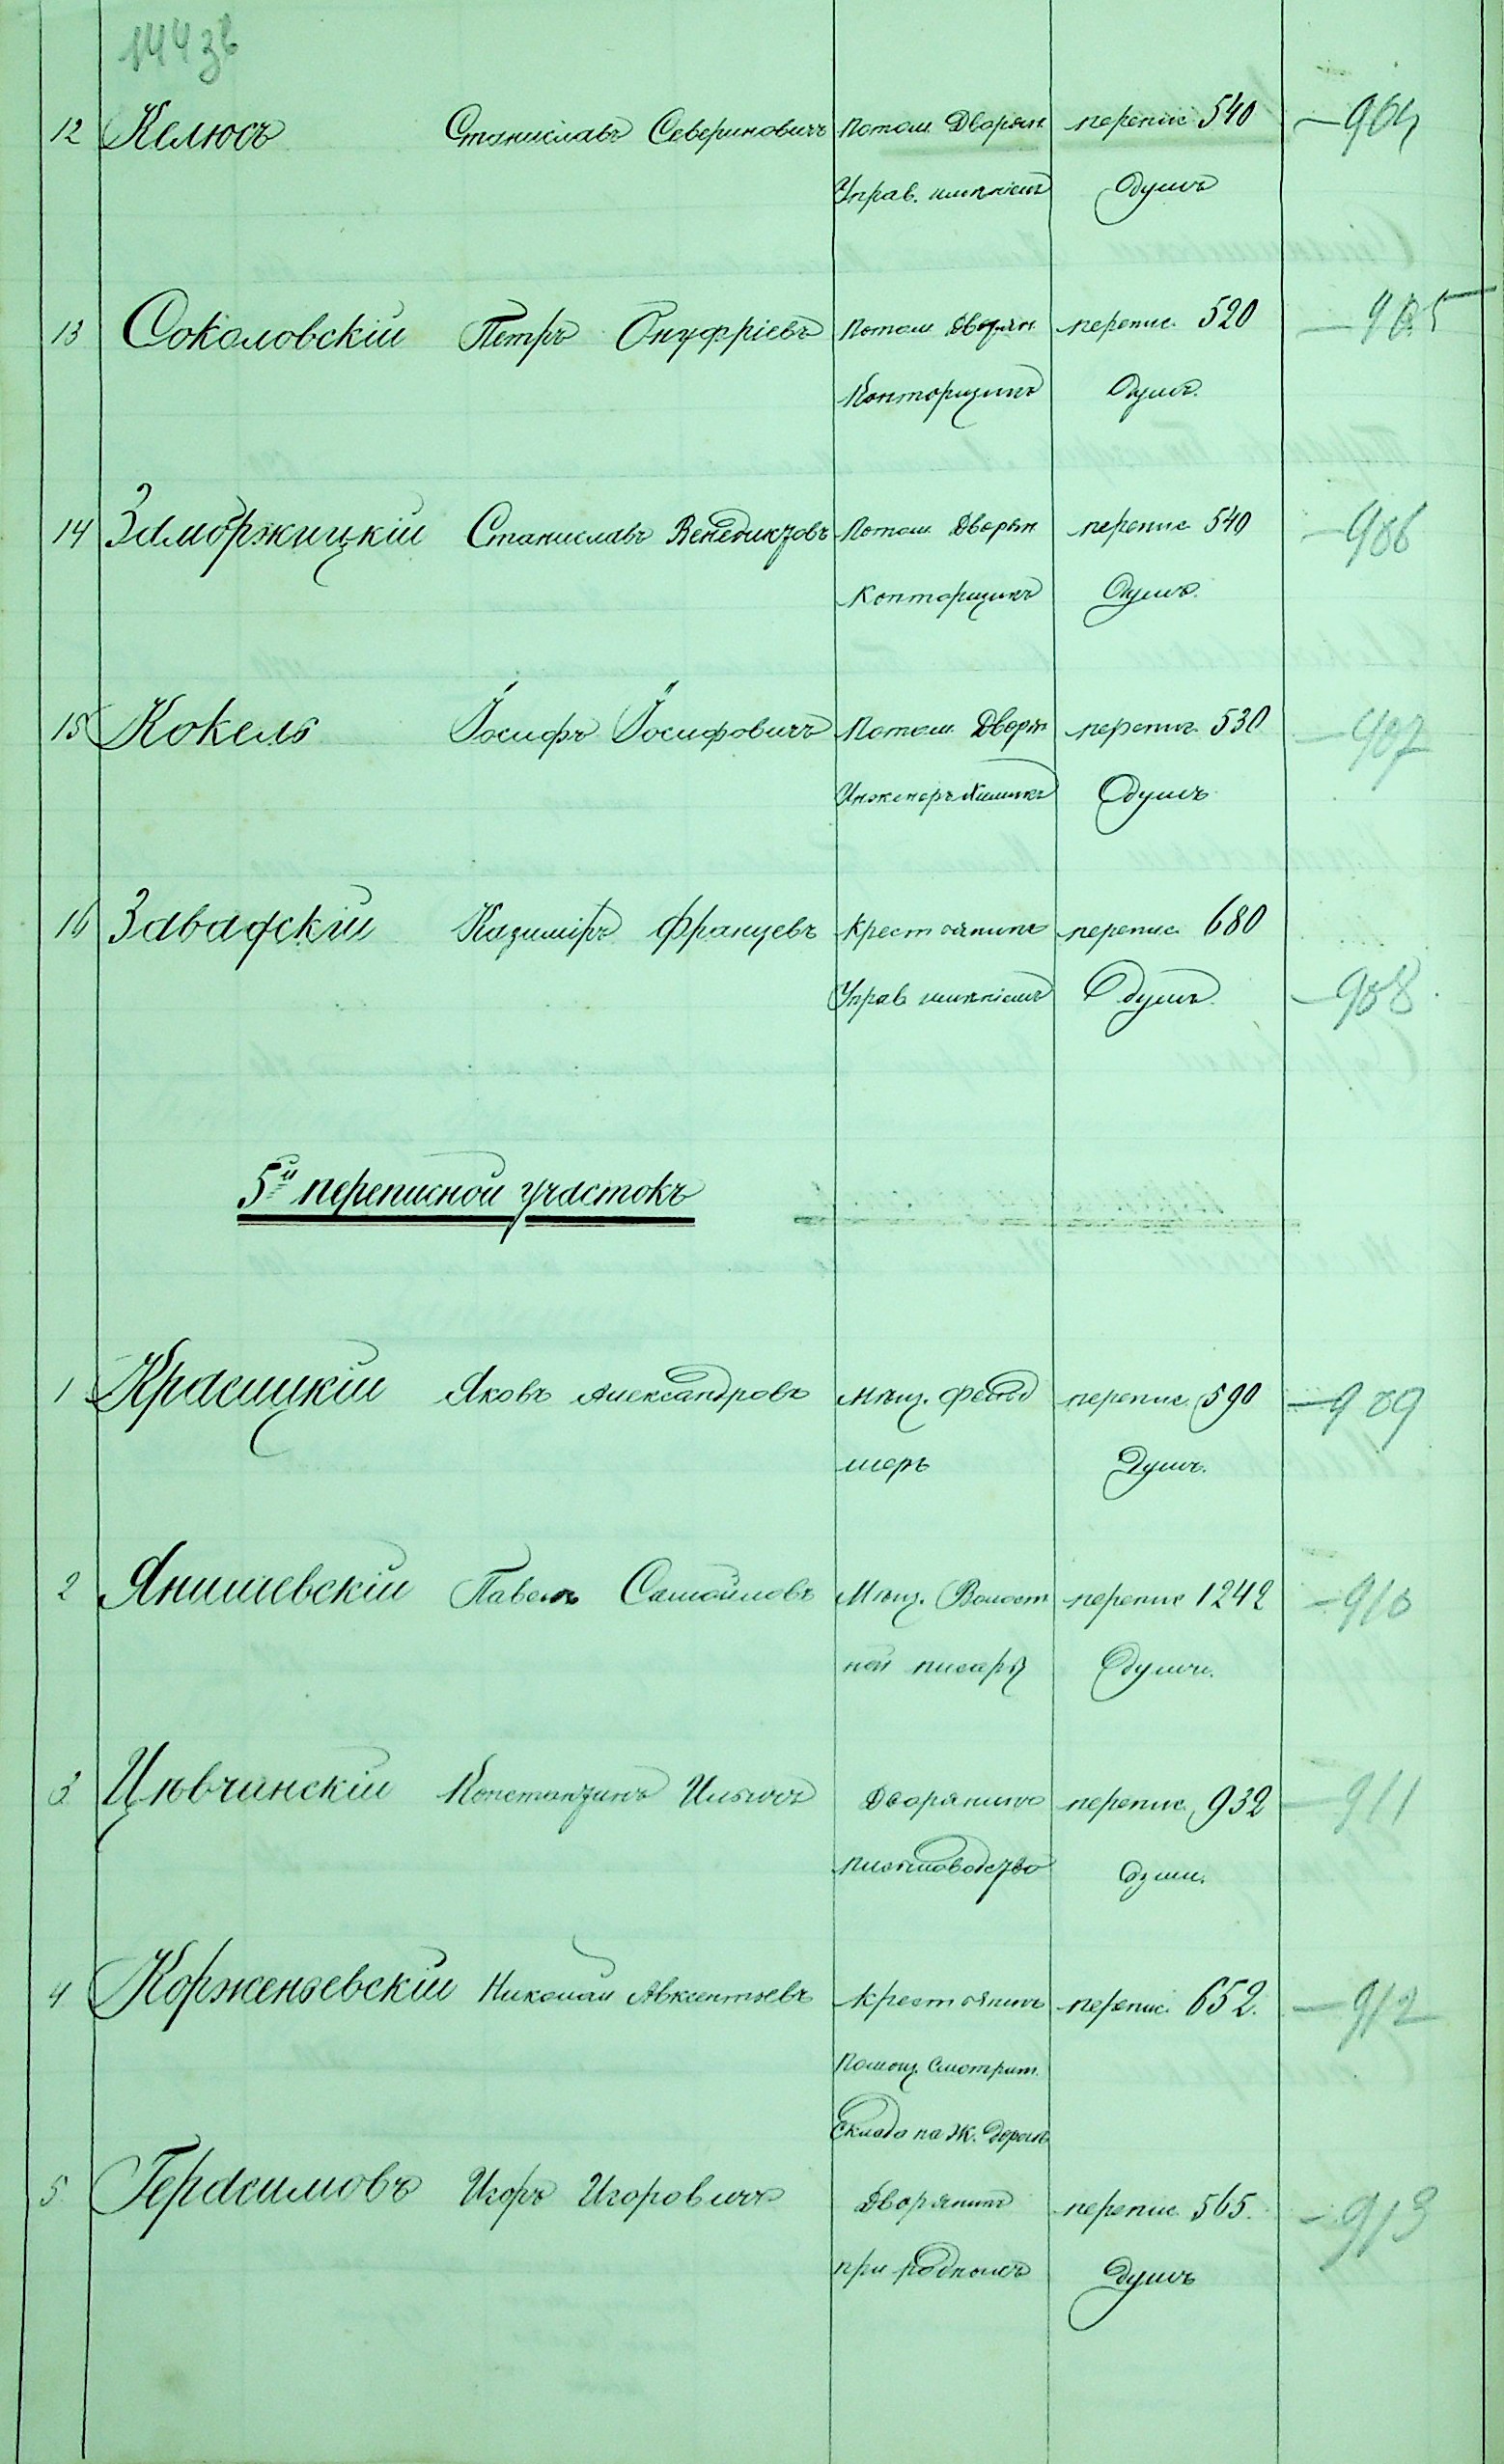 144 зв
12 Келюсъ Станиславъ Севериновичъ Потом. Дворян. перепис 540 — 904
Управ. имѣніемъ Душъ
13 Соколовскій Петръ Онуфріевъ Потом Дворян. перепис. 520 — 905
Конторщикъ Душъ.
14 Заморжицкій Станиславъ Венедиктовъ Потом. Дворян перепис 540 — 906
Конторщикъ Душъ.
15 Кокель Іосифъ Іосифовичъ Потом. Дворян перепис. 530 — 907
Инженеръ Химикъ Душъ
16 Завадскій Казиміръ Францевъ Крестьянинъ перепис. 680
Управ имѣніемъ Душъ. — 908
5й переписной участокъ
1 Красицкій Яковъ Александровъ Мѣщ. Фельд перепис. 590 — 909
шеръ Душъ.
2 Янишевскій Павелъ Самойловъ Мѣщ. Волост перепис 1242 — 910
ной писарь Души.
3 Цѣвчинскій Константинъ Ильичъ Дворянинъ перепис. 932 — 911
письмоводство души.
4 Корженьевскій Николай Авксентьевъ Крестьянинъ перепис. 652. — 912
Помощ. Смотрит.
Склада на Ж. Дорогѣ
5 Герасимовъ Игорь Игоровичъ Дворянинъ перепис. 565. — 913
при родномъ Душъ